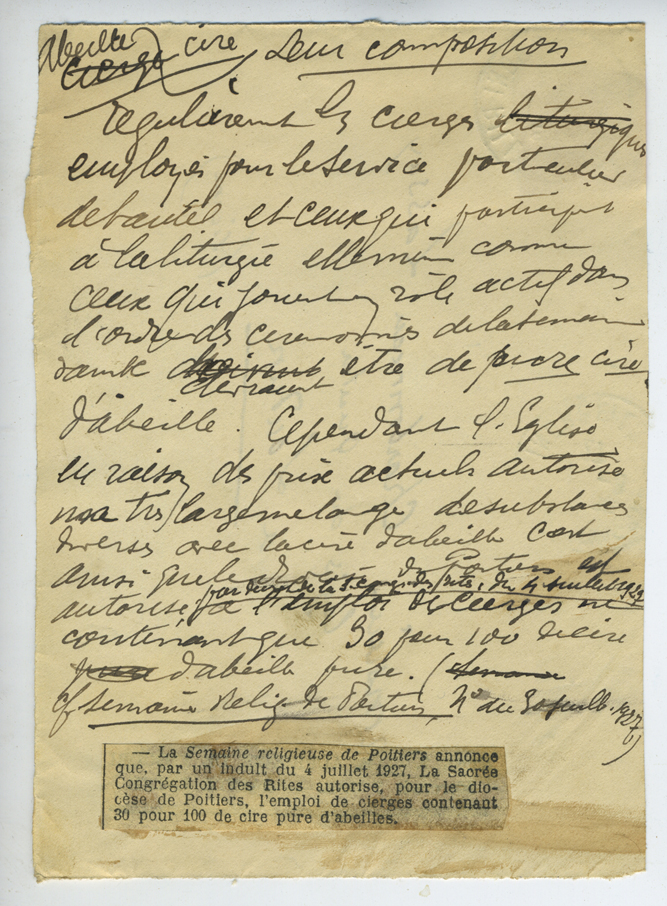 Abeille cire Leur composition
Cierge
régulièrement les cierges liturgiques
employés pour le service particulier
de l'autel et ceux qui participent
à la liturgie elle même comme
ceux qui jouent un rôle actif dans
l'ordre des cérémonies de la semaine
sainte être de pure cire
devraient
d'abeille. Cependant l'Eglise
en raison des prix actuels autorise
un très large mélange de substances
diverses avec la cire d'abeille c'est
ainsi que le de Poitiers est
par décret de la S. Cong. des Rites, du 4 Juillet 1927
autorisé à l'emploi de cierges ne
contenant que 30 pour 100 de cire
pure d'abeille pure. (Semaine
cf Semaine Relig. de Poitiers, N° du 30 juill. 1927
— La Semaine religieuse de Poitiers annonce
que, par un indult du 4 juillet 1927, La Sacrée
Congrégation des Rites autorise, pour le dio-
cèse de Poitiers, l'emploi de cierges contenant
30 pour 100 de cire pure d'abeilles.